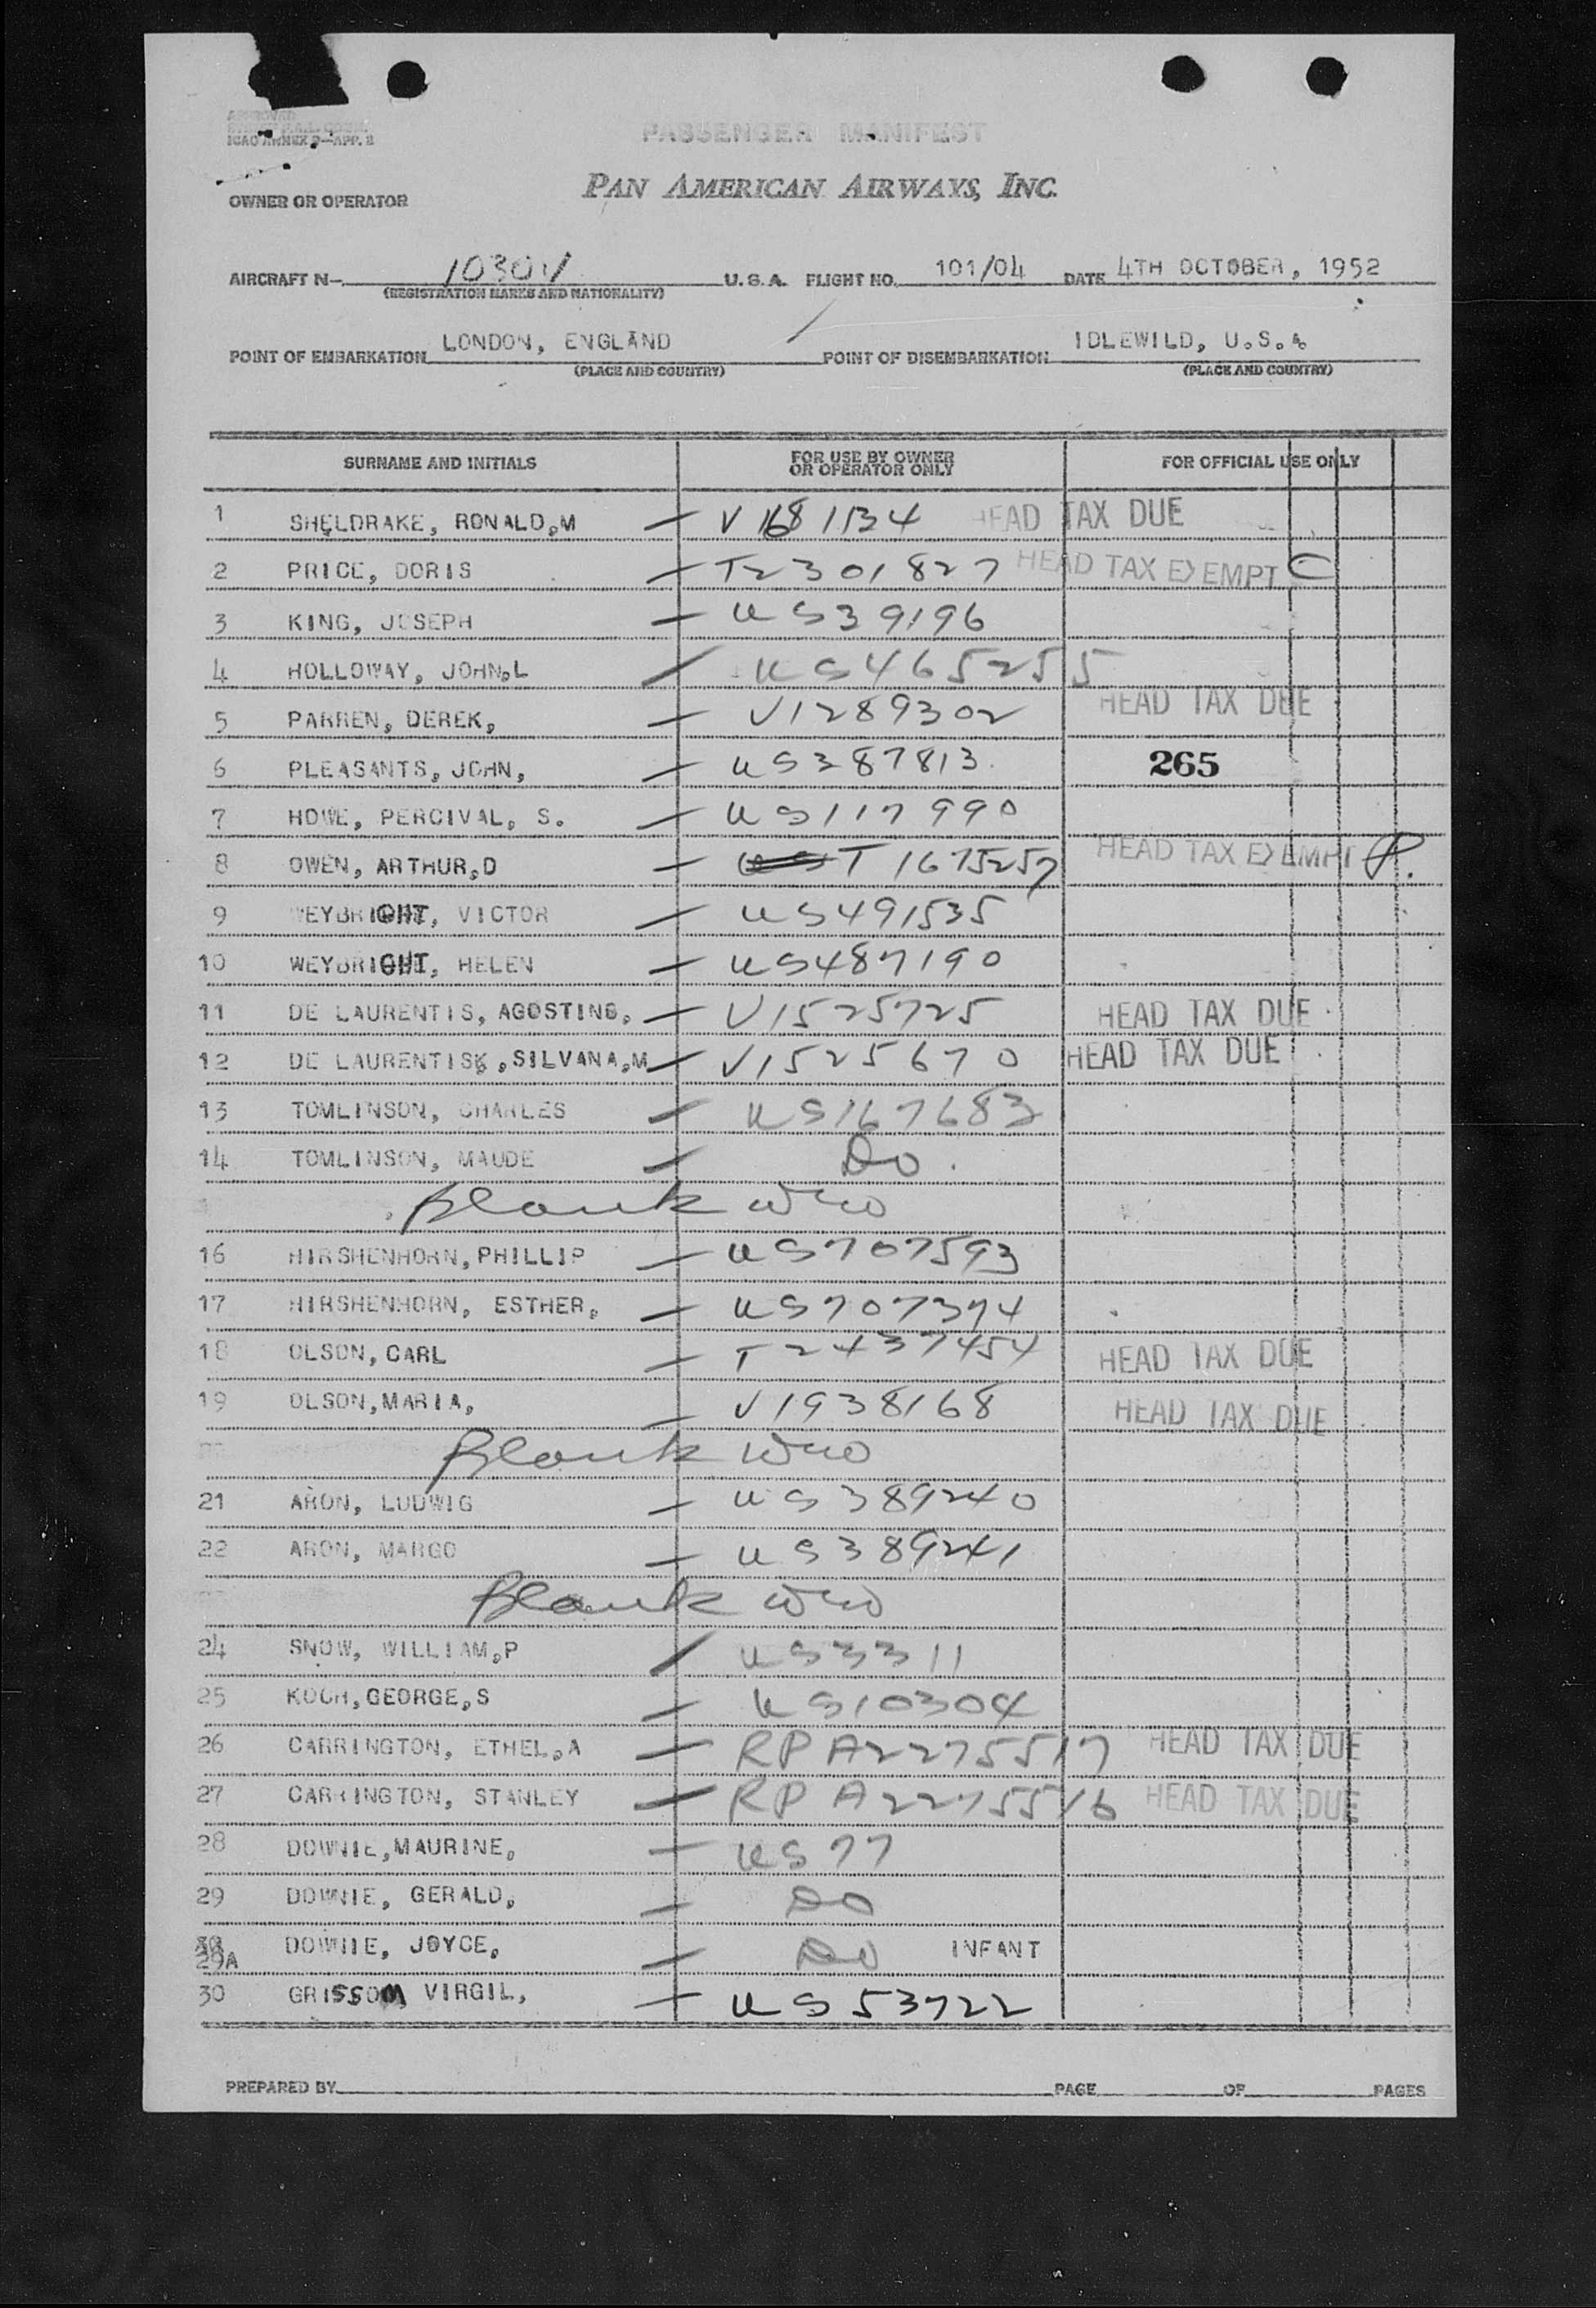 APPROVED
ICAO ANNEX 9—APP. 2
PASSENGER MANIFEST
PAN AMERICAN AIRWAYS, INC.
OWNER OR OPERATOR
AIRCRAFT N- 1030V U. S. A. FLIGHT NO. 101/04 DATE 4TH OCTOBER, 1952
(REGISTRATION MARKS AND NATIONALITY)
POINT OF EMBARKATION LONDON, ENGLAND POINT OF DISEMBARKATION IDLEWILD, U.S.A.
(PLACE AND COUNTRY) (PLACE AND COUNTRY)
SURNAME AND INITIALS FOR USE BY OWNER OR OPERATOR ONLY FOR OFFICIAL USE ONLY
1 SHELDRAKE, RONALD,M — V 1681134 HEAD TAX DUE
2 PRICE, DORIS — T2301827 HEAD TAX EXEMPT C
3 KING, JOSEPH — US39196
4 HOLLOWAY, JOHN,L — US465255
5 PARREN, DEREK, — V1289302 HEAD TAX DUE
6 PLEASANTS, JOHN, — US387813 265
7 HOWE, PERCIVAL, S. — US117990
8 OWEN, ARTHUR,D — T1675257 HEAD TAX EXEMPT P.
9 WEYBRIGHT, VICTOR — US491535
10 WEYBRIGHT, HELEN — US487190
11 DE LAURENTIS, AGOSTINO, — V1525725 HEAD TAX DUE
12 DE LAURENTIS, SILVANA,M — V1525670 HEAD TAX DUE
13 TOMLINSON, CHARLES — US167683
14 TOMLINSON, MAUDE — Do.
Blank
16 HIRSHENHORN, PHILLIP — US707593
17 HIRSHENHORN, ESTHER, — US707374
18 OLSON, CARL — T2437454 HEAD TAX DUE
19 OLSON,MARIA, — V1938168 HEAD TAX DUE
Blank
21 ARON, LUDWIG — US389240
22 ARON, MARGO — US389241
Blank
24 SNOW, WILLIAM,P — US3311
25 KOCH,GEORGE,S — US10304
26 CARRINGTON, ETHEL,A — RP A2275517 HEAD TAX DUE
27 CARRINGTON, STANLEY — RP A2275516 HEAD TAX DUE
28 DOWNIE,MAURINE, — US77
29 DOWNIE, GERALD, — DO
29A DOWNIE, JOYCE, — DO INFANT
30 GRISSOM VIRGIL, — US53722
PREPARED BY PAGE OF PAGES